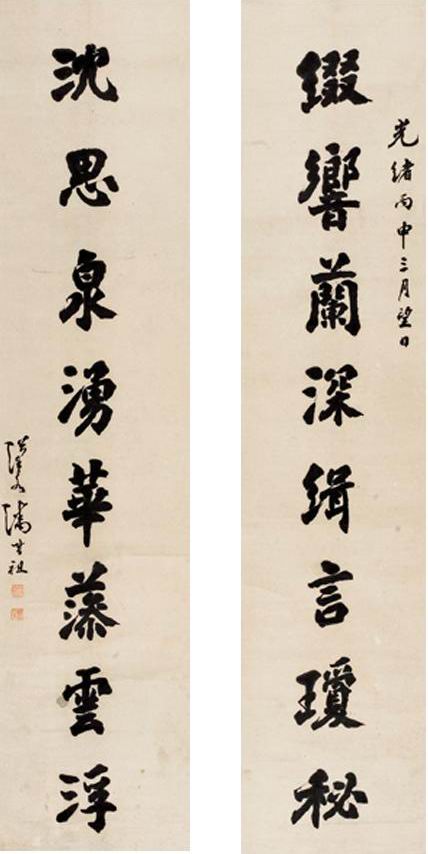 光緒丙申三月望日
綴響蘭深緝言瓊秘
沈思泉湧華藻雲浮
潘 祖